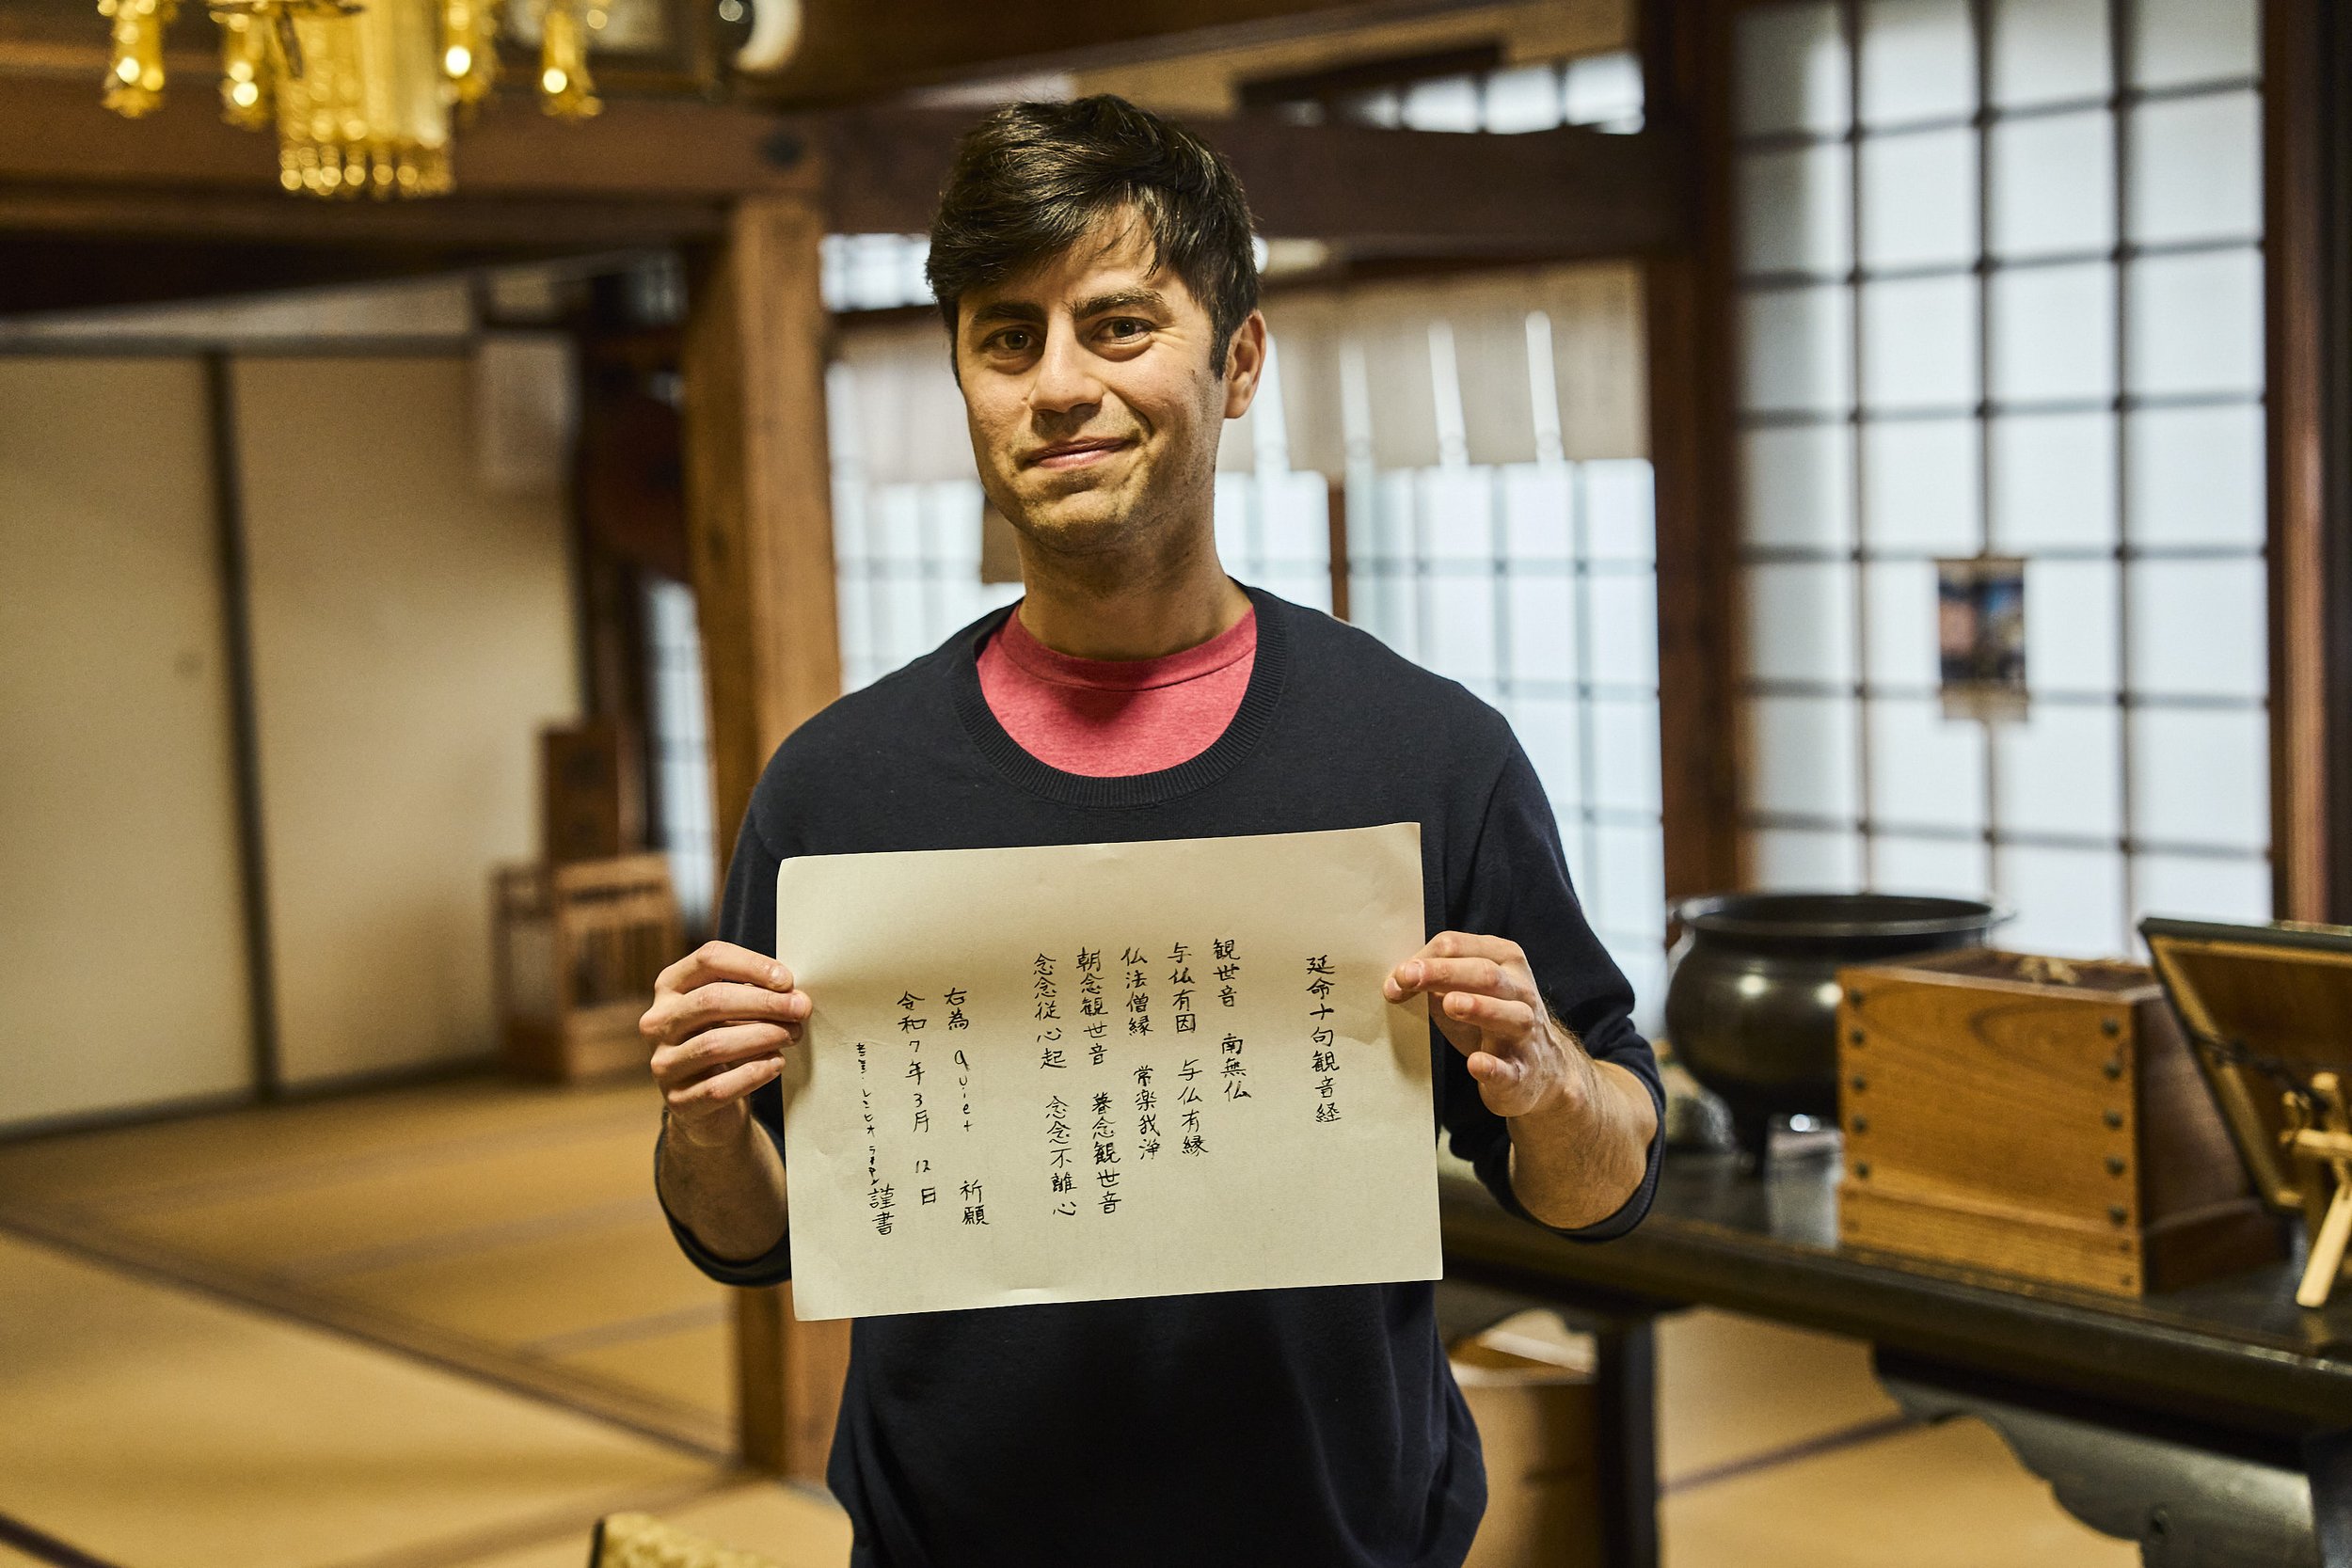 延命十句観音経
観世音 南無仏
与仏有因 与仏有縁
仏法僧縁 常楽我浄
朝念観世音 暮念観世音
念念従心起 念念不離心
右為 quiet 祈願
令和7年3月 12日
謹書